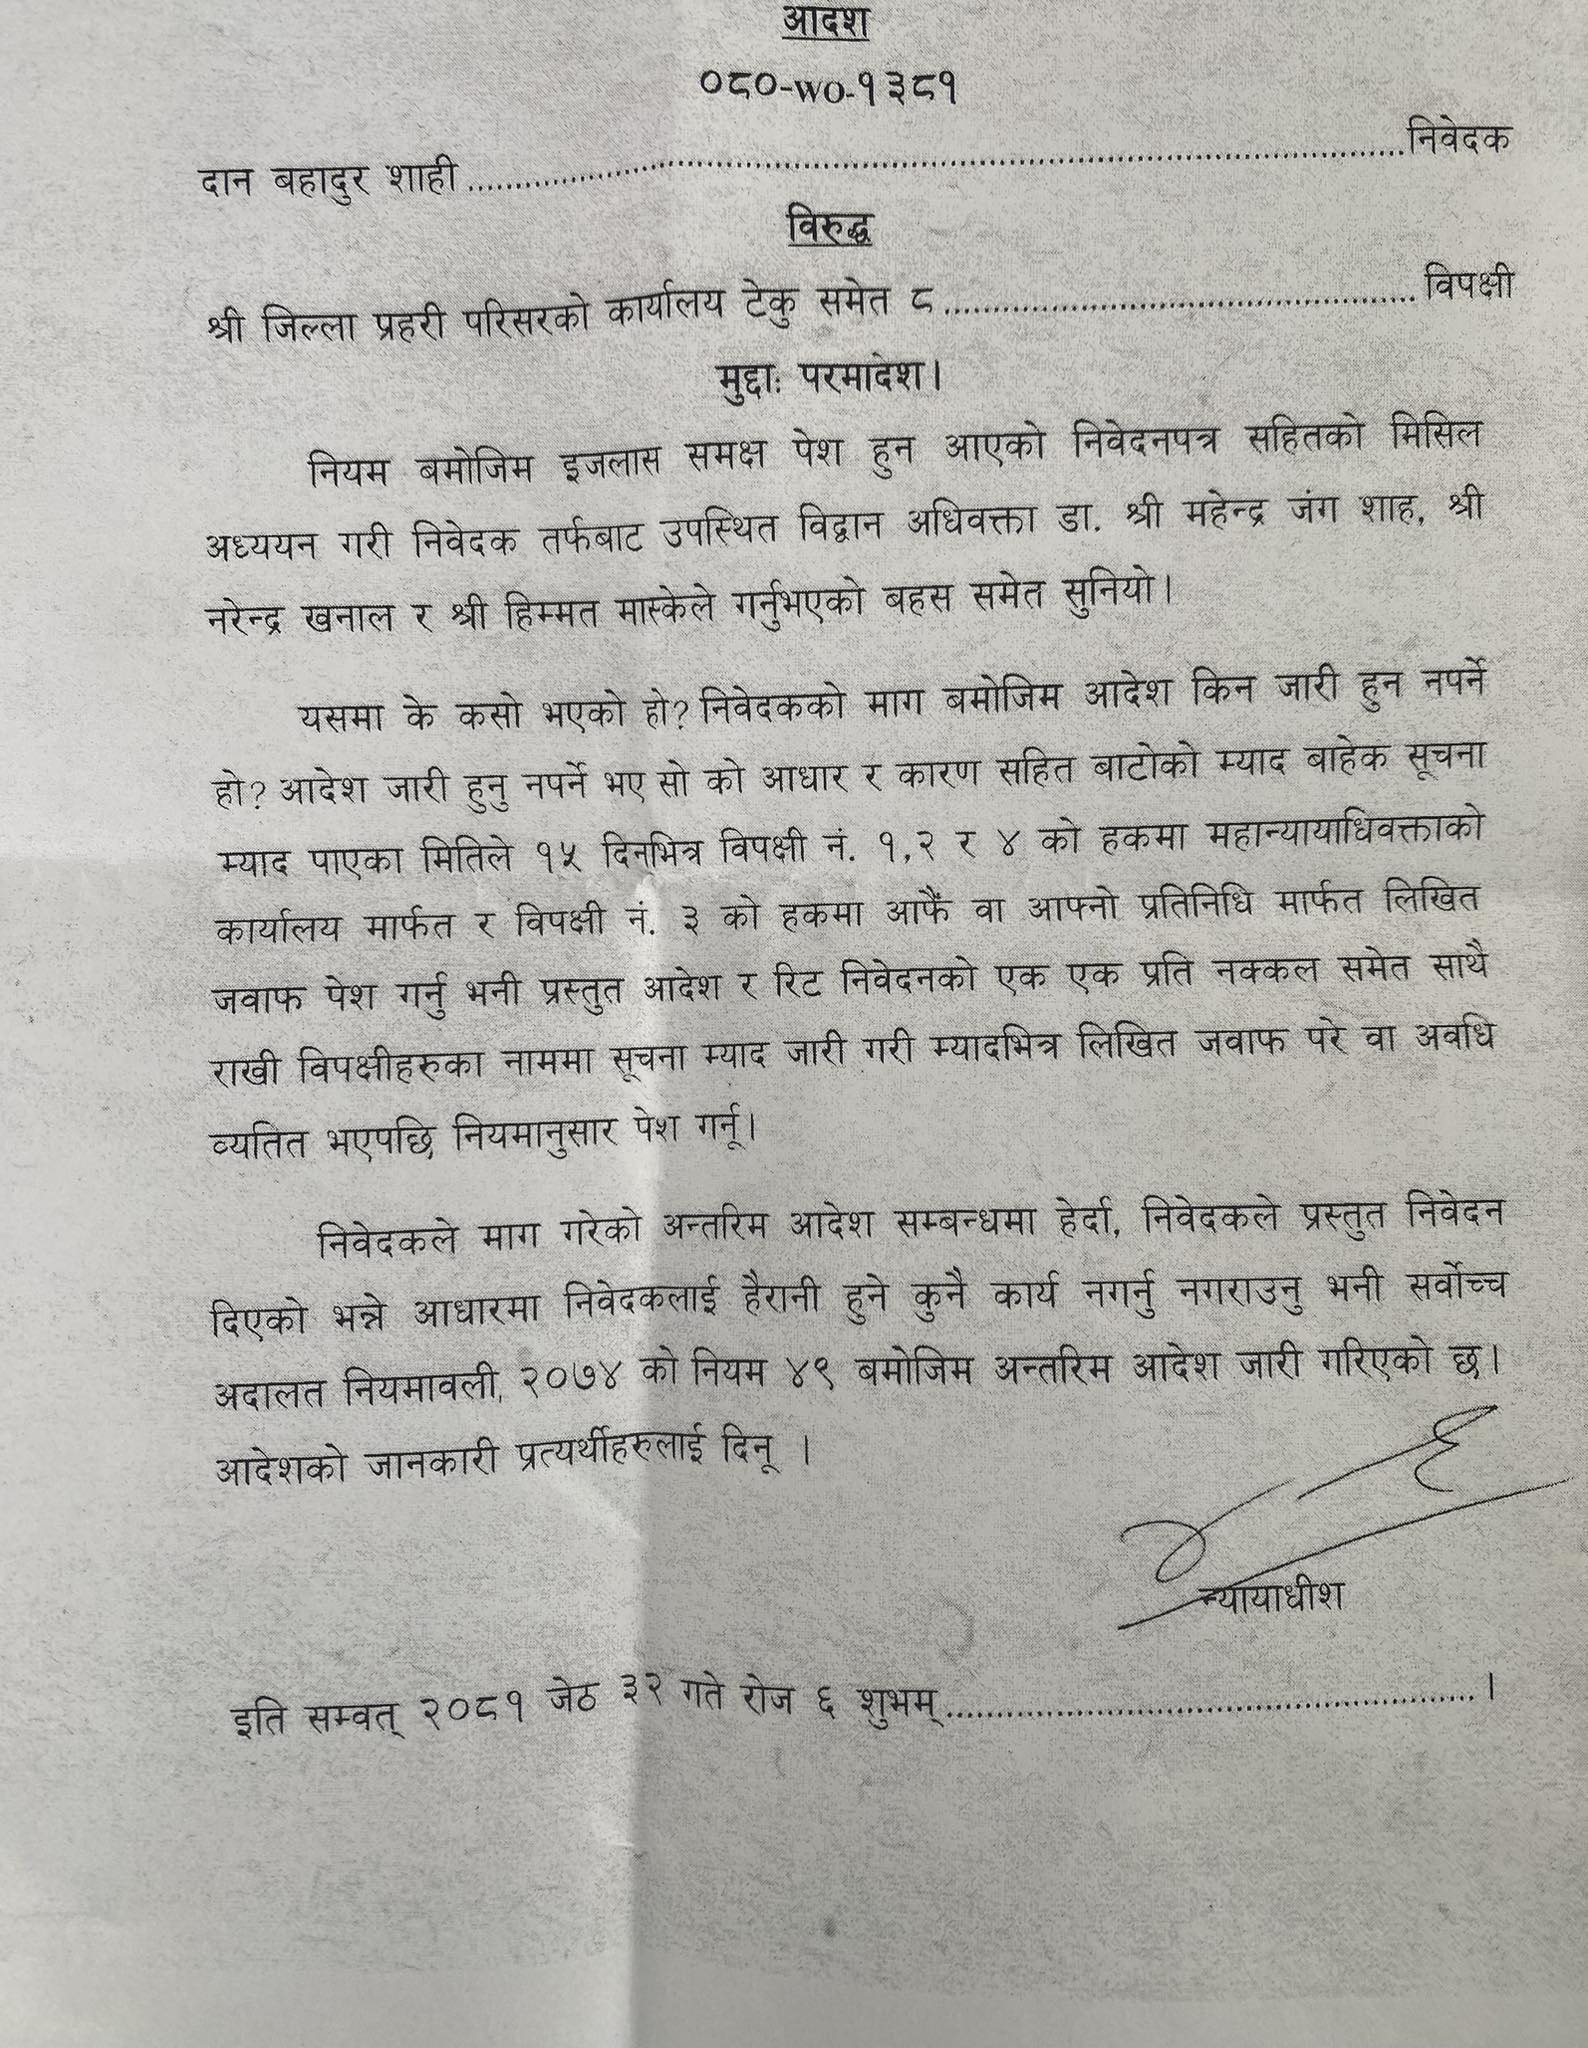 आदेश
०८०-WO-१३८१
दान बहादुर शाही.......................................................................................निवेदक
विरुद्ध
श्री जिल्ला प्रहरी परिसरको कार्यालय टेकु समेत ८....................................................विपक्षी
मुद्दाः परमादेश।
नियम बमोजिम इजलास समक्ष पेश हुन आएको निवेदनपत्र सहितको मिसिल
अध्ययन गरी निवेदक तर्फबाट उपस्थित विद्वान अधिवक्ता डा. श्री महेन्द्र जंग शाह, श्री
नरेन्द्र खनाल र श्री हिम्मत मास्केले गर्नुभएको बहस समेत सुनियो।
यसमा के कसो भएको हो? निवेदकको माग बमोजिम आदेश किन जारी हुन नपर्ने
हो? आदेश जारी हुनु नपर्ने भए सो को आधार र कारण सहित बाटोको म्याद बाहेक सूचना
म्याद पाएका मितिले १५ दिनभित्र विपक्षी नं. १,२ र ४ को हकमा महान्यायाधिवक्ताको
कार्यालय मार्फत र विपक्षी नं. ३ को हकमा आफैं वा आफ्नो प्रतिनिधि मार्फत लिखित
जवाफ पेश गर्नु भनी प्रस्तुत आदेश र रिट निवेदनको एक एक प्रति नक्कल समेत साथै
राखी विपक्षीहरुका नाममा सूचना म्याद जारी गरी म्यादभित्र लिखित जवाफ परे वा अवधि
व्यतित भएपछि नियमानुसार पेश गर्नू।
निवेदकले माग गरेको अन्तरिम आदेश सम्बन्धमा हेर्दा, निवेदकले प्रस्तुत निवेदन
दिएको भन्ने आधारमा निवेदकलाई हैरानी हुने कुनै कार्य नगर्नु नगराउनु भनी सर्वोच्च
अदालत नियमावली, २०७४ को नियम ४९ बमोजिम अन्तरिम आदेश जारी गरिएको छ।
आदेशको जानकारी प्रत्यर्थीहरुलाई दिनू ।
न्यायाधीश
इति सम्वत् २०८१ जेठ ३२ गते रोज ६ शुभम्.......................................................।